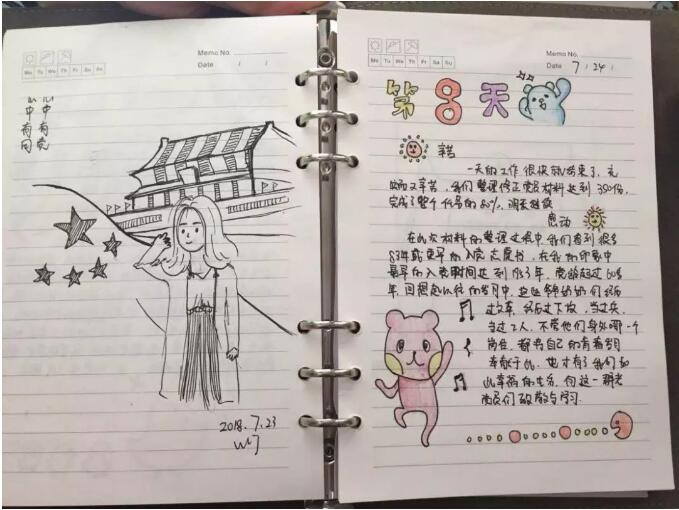 Memo No.
Mo Tu We Th Fr Sa Su
Date / /
心中有党
心中有国
2018.7.23
Memo No.
Mo Tu We Th Fr Sa Su
Date 7 / 24 /
第8天
一天的工作很快就结束了,充
又辛苦,我们整理修正党员材料达到350份,
完成了整个任务的80%,明天继续
感动
在此次材料的整理过程中,我们看到很多
83年或更早的入党志愿书,在我的印象中
最早的入党时间达到1953年,党龄超过60多
年,回想起以往的岁月中,这些爷爷奶奶们经历
过文革,经历过下放,当过兵,
当过工人,不管他们身处哪一个
岗位,都将自己的青春岁月
奉献于此,也才有了我们如
此幸福的生活,向这一群老
党员们致敬与学习.